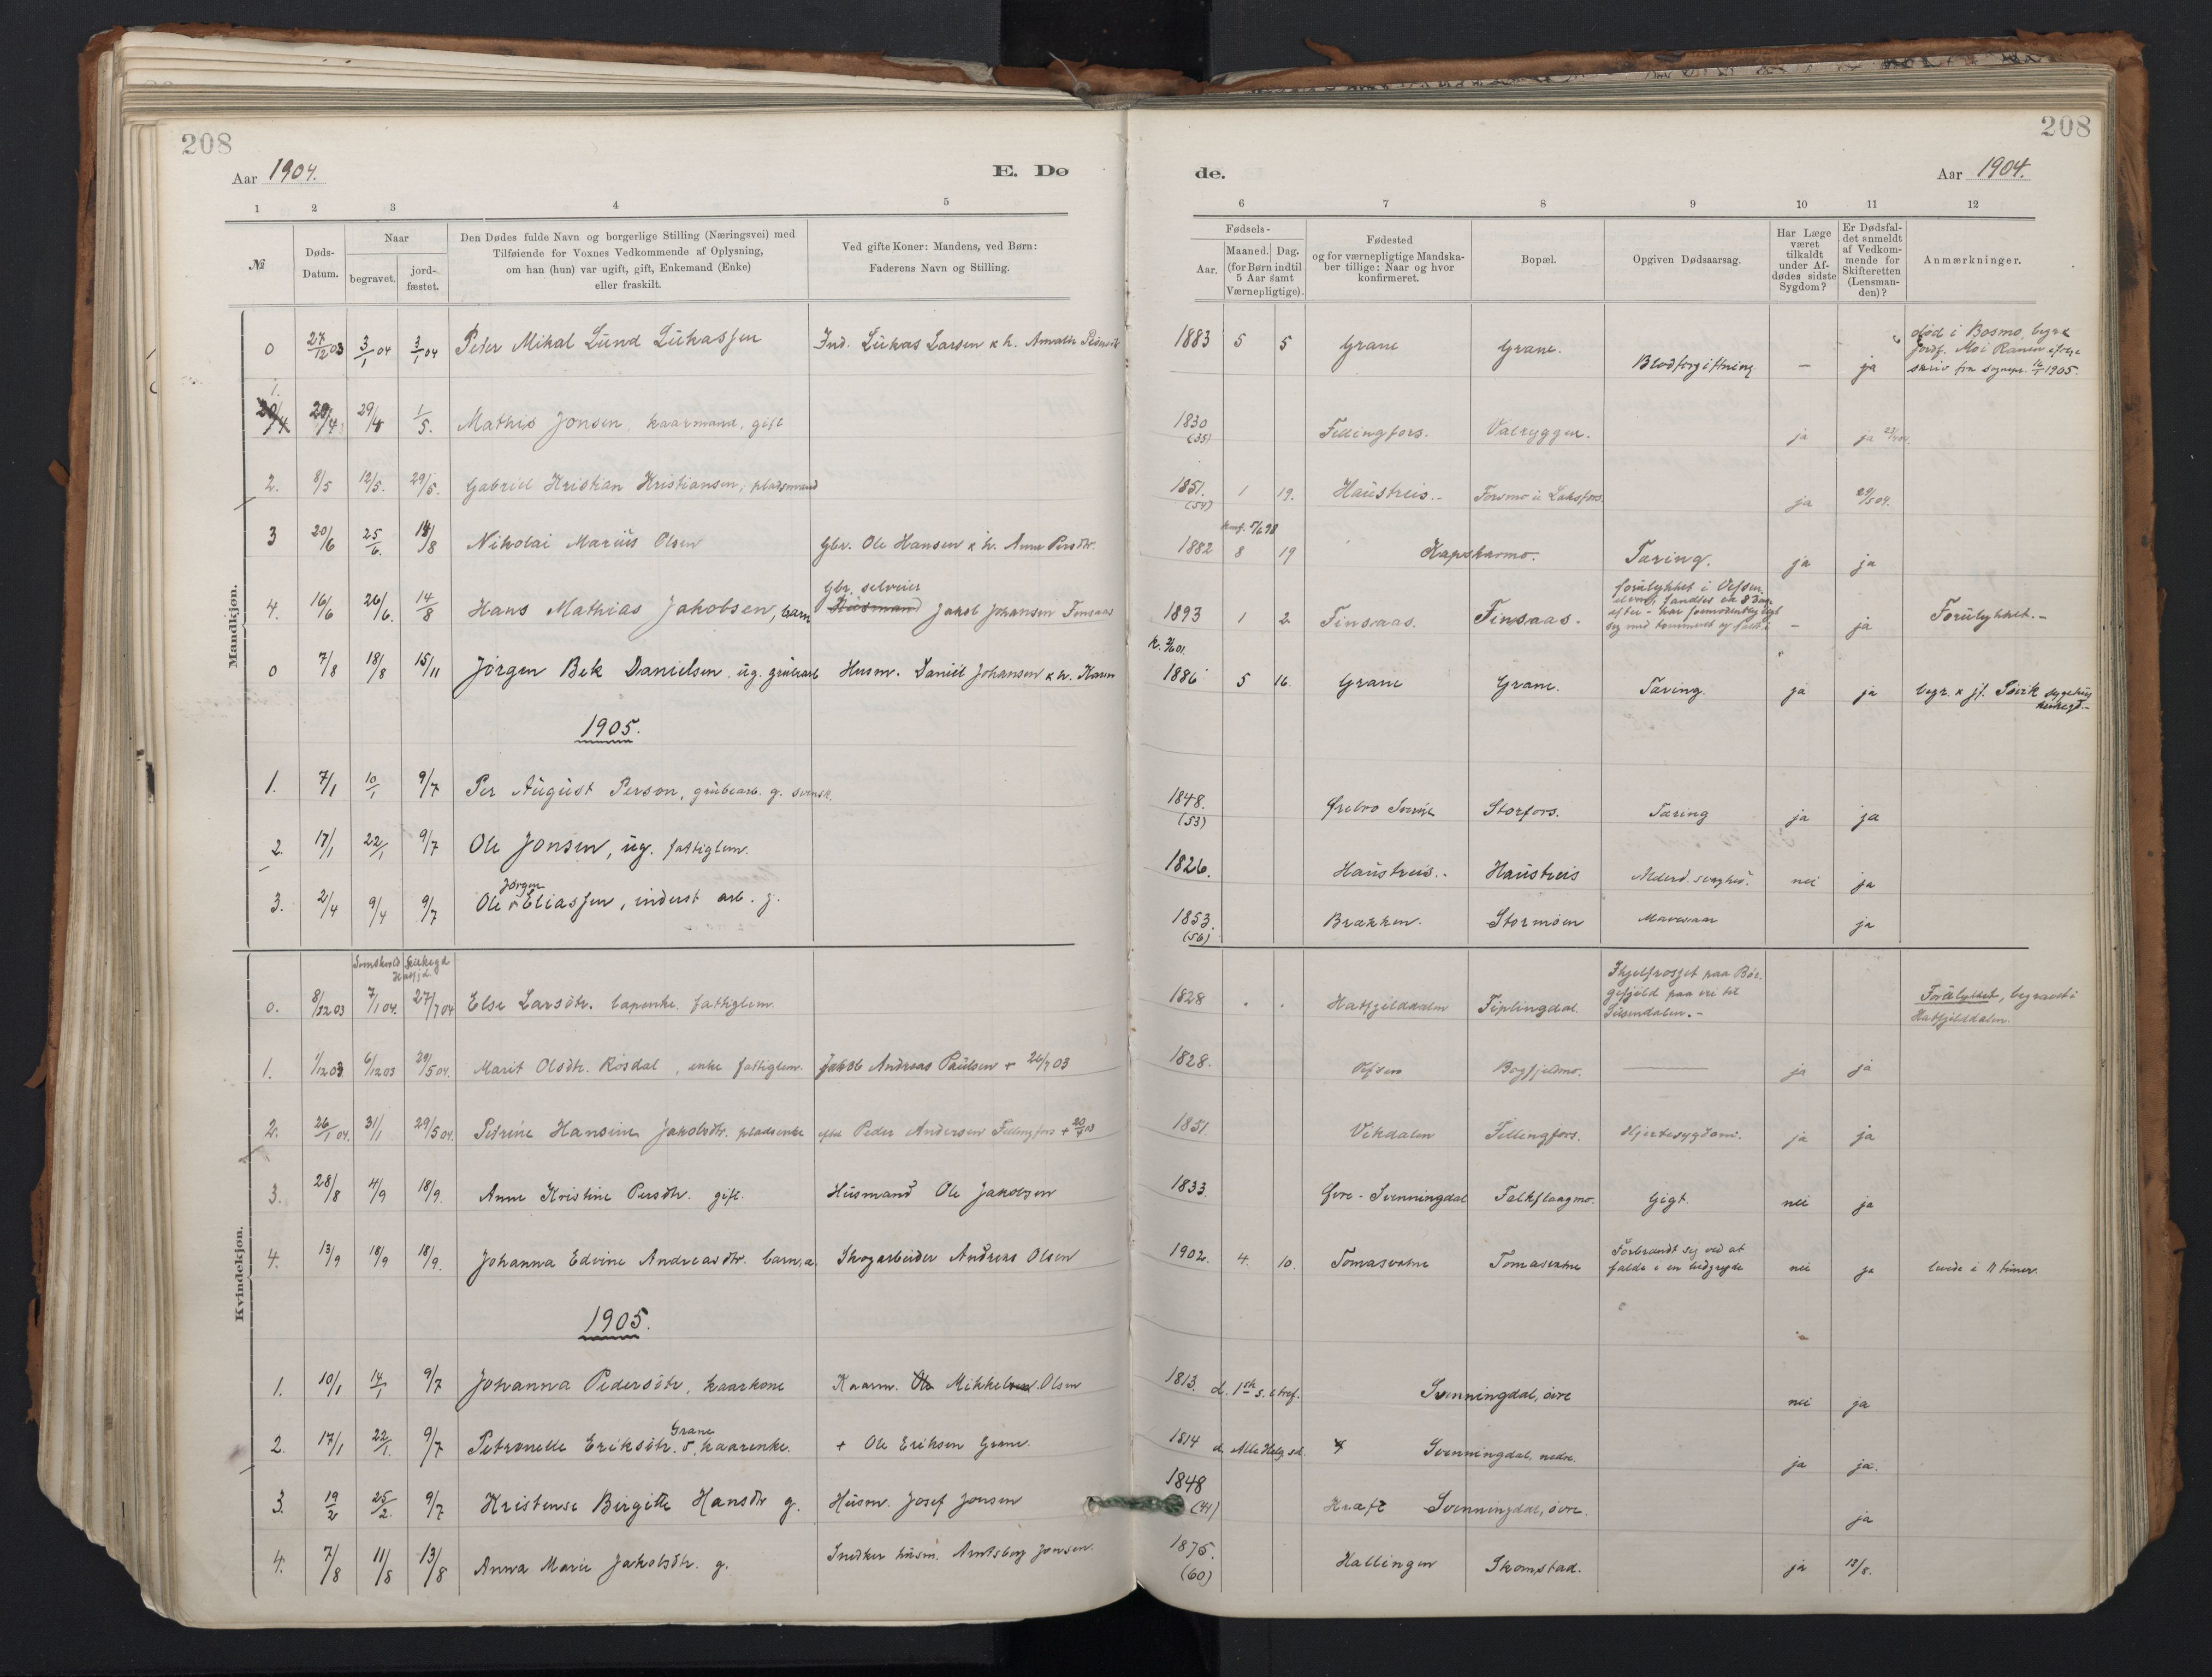 208
208
Aar 1904.
E. Dø
de.
Aar 1904.
1 2 3 4 5
6 7 8 9 10 11 12
№
Døds-Datum.
Naar
begravet.
jord-fæstet.
Den Dødes fulde Navn og borgerlige Stilling (Næringsvei) med
Tilføiende for Voxnes Vedkommende af Oplysning,
om han (hun) var ugift, gift, Enkemand (Enke)
eller fraskilt.
Ved gifte Koner: Mandens, ved Børn:
Faderens Navn og Stilling.
Fødsels-
Aar.
Maaned. Dag.
(for Børn indtil
5 Aar samt
Værnepligtige).
Fødested
og for værnepligtige Mandska-
ber tillige: Naar og hvor
konfirmeret.
Bopæl.
Opgiven Dødsaarsag.
Har Læge
været
tilkaldt
under Af-
dødes sidste
Sygdom?
Er Dødsfal-
det anmeldt
af Vedkom-
mende for
Skifteretten
(Lensman-
den)?
Anmærkninger.
Mandkjøn.
0 27/12 03 3/1 04 3/1 04 Peter Mikal Lund Lukassen Ind. Lukas Larsen & h. Amalie 1883 5 5 Grane Grane. Blodforgiftning — ja død i Bosmo, begr. &
jordf. Mo i Ranen ifølge
skriv fra sognepr. 16/1 1905.
1. 20/4 29/4 1/5. Mathis Jonsen, kaarmand, gift 1830 (35) Fellingfors. Valryggen. ja ja
2. 8/5 12/5. 29/5. Gabriel Kristian Kristiansen, pladsmand 1851. (54) 1 19. Haustreis.- Formo u. Laksfors. ja 29/5 04.
konf. 5/6 98
3 20/6 25/6. 14/8 Nikolai Marius Olsen Gbr. Ole Hansen & h. Anne Persdtr. 1882 8 19 Kapskarmo. Tæring. ja ja
4. 16/6 26/6. 14/8 Hans Mathias Jakobsen, barn Gbr. selveier Husmand Jakob Johansen Finsaas 1893 1 2 Finsaas. Finsaas. forulykket i Vefsen
elven, fandtes ca 8 Dage
efter - har formodentlig lagt
sig med tømmeret og faldt i - ja Forulykket.-
k. 2/6 01.
0 7/8 18/8 15/11 Jørgen Bek Danielsen ug. grubearb Husm. Daniel Johansen & h. Karen 1886 5 16. Grane Grane. Tæring. ja ja begr. & jf. Søvik sygehus
kirkegd.-
1905.
1. 7/1 10/1 9/7 Per August Person, grubearb. g. svensk. 1848. (53) Ørebro Sverige Storfors. Tæring ja ja
2. 17/1 22/1 9/7 Ole Jonsen, ug. fattiglem. 1826. Haustreis.- Haustreis Alderd. svaghed. nei ja
3. 2/4 9/4 9/7 Ole Jørgen Eliassen, inderst arb. g. 1853. (56) Brækken. Stormoen Mavesaar ja
Kvindekjøn.
0. 8/12 03 7/1 04. 27/7 04 Else Larsdtr. lapenke fattiglem 1828 Hatfjelddalen Fiplingdal. Ihjelfrosset paa Bør-
gefjeld paa vei til
Susendalen.- Forulykket, begravet i
Hatfjelddalen.
1. 1/12 03 6/12 03 29/5 04. Marit Olsdtr. Rosdal, enke fattiglem. Jakob Andreas Paulsen + 26/7 03 1828. Vefsen Bogfjeldmo. ja ja
2. 26/1 04. 31/1 29/5 04. Petrine Hansine Jakobsdtr. pladsenke efter Peder Andersen Fellingfors + 1851. Vikdalen Fellingfors. Hjertesygdom. ja ja
3. 28/8 4/9 18/9. Anne Kristine Persdtr. gift. Husmand Ole Jakobsen 1833. Øvre-Svenningdal Falkflaagmo. Gigt. nei ja
4. 13/9 18/9 18/9. Johanna Edvine Andreasdtr. barn, æ. Skogarbeider Andreas Olsen 1902. 4. 10. Tomasvatne Tomasvatne Forbrændt sig ved at
falde i en ludgryde nei ja levede i 11 timer.
1905.
1. 10/1 14/1 9/7 Johanna Pedersdtr, kaarkone Kaarm. Ole Mikkel Olsen 1813. d. 1ste s. e tref. Svenningdal, øvre nei ja
2. 17/1 22/1. 9/7 Petronelle Eriksdtr. Grane, kaarenke. + Ole Eriksen Grane. 1814 d. Alle Helg. sd. Svenningdal, nedre. ja ja.
3. 19/2 25/2. 9/7 Kristense Birgitte Hansdtr g. Husm. Josef Jonsen 1848 (41) Kræft Svenningdal, øvre. ja
4. 7/8 11/8 13/8 Anna Marie Jakobsdtr. g. Snedker husm. Arntsberg Jonsen. 1875. (60) Hallingen Skomstad. ja 13/8.